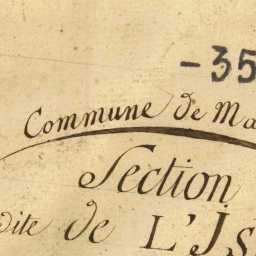 - 35
Commune de Ma
Section
dite de L'Is